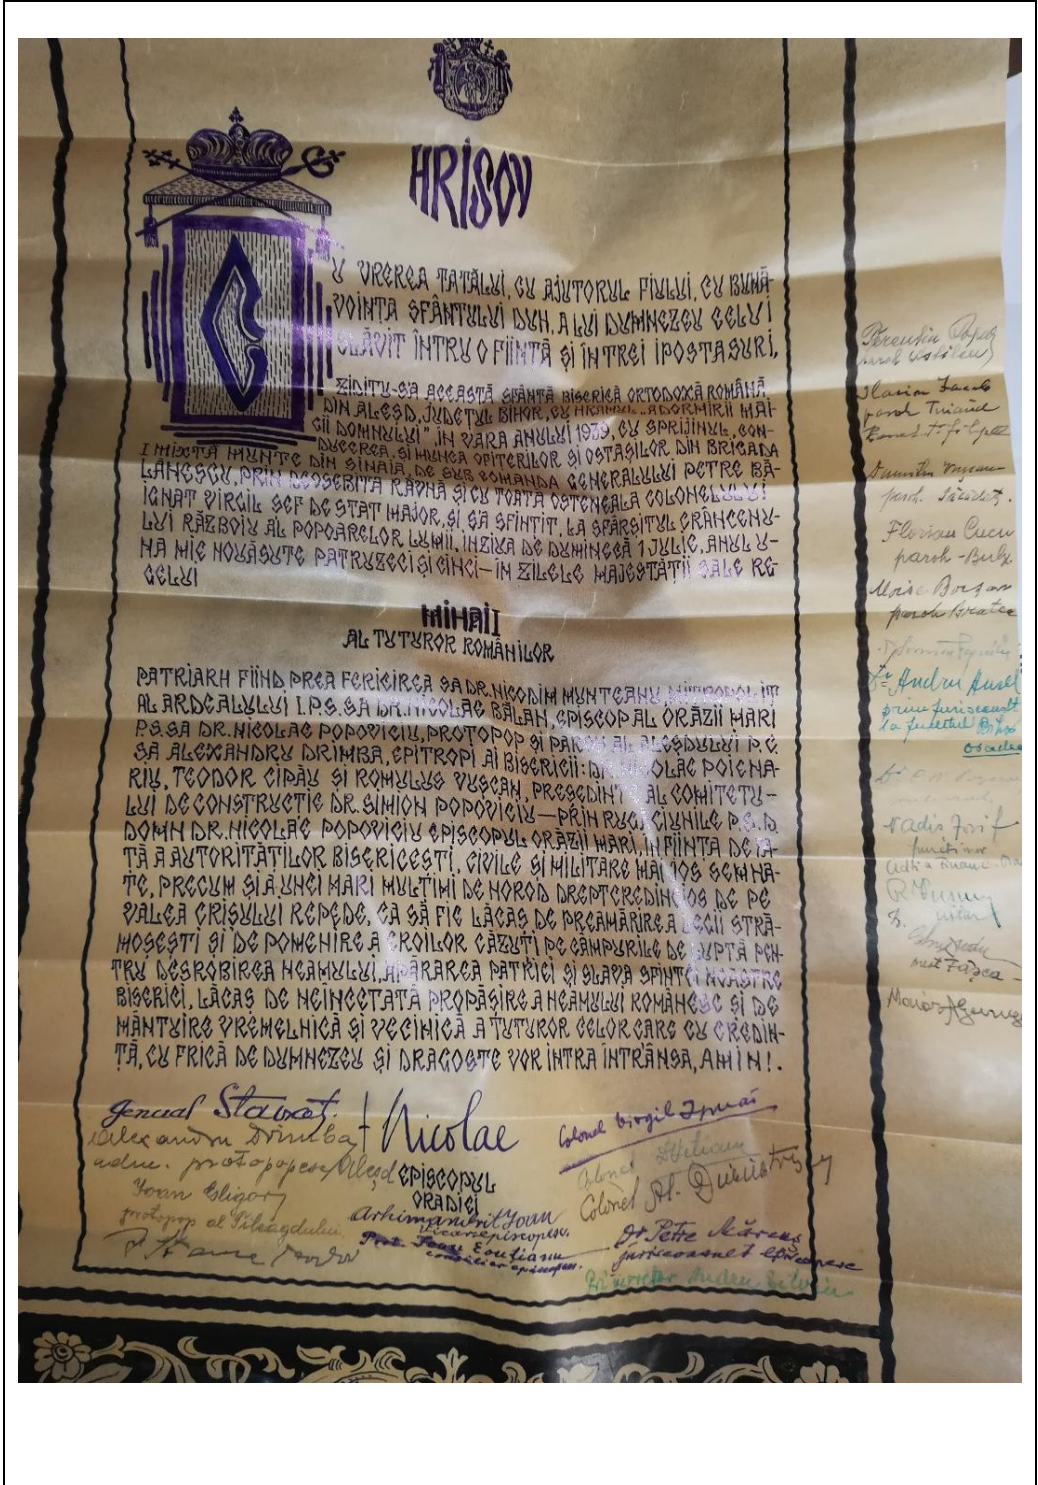 HRISOV
CU VREREA TATĂLUI, CU AJUTORUL FIULUI, CU BUNĂ-
VOINȚA SFÂNTULUI DUH, A LUI DUMNEZEU CELUI
SLĂVIT ÎNTRU O FIINȚĂ ȘI ÎN TREI IPOSTASURI,
ZIDITU-S'A ACEASTĂ SFÂNTĂ BISERICĂ ORTODOXĂ ROMÂNĂ
DIN ALEȘD, JUDEȚUL BIHOR, CU HRAMUL „ADORMIRII MAI-
CII DOMNULUI", ÎN VARA ANULUI 1939, CU SPRIJINUL, CON-
DUCEREA, ȘI MUNCA OFIȚERILOR ȘI OSTAȘILOR DIN BRIGADA
I MIXTĂ MUNTE DIN SINAIA, DE SUB COMANDA GENERALULUI PETRE BĂ-
LĂNESCU, PRIN DEOSEBITA RÂVNĂ ȘI CU TOATĂ OSTENEALA COLONELULUI
IGNAT VIRGIL ȘEF DE STAT MAJOR, ȘI S'A SFINȚIT, LA SFÂRȘITUL CRÂNCENU-
LUI RĂZBOIU AL POPOARELOR LUMII, ÎN ZIUA DE DUMINECĂ 1 JULIE, ANUL U-
NA MIE NOUĂSUTE PATRUZECI ȘI CINCI — ÎN ZILELE MAJESTĂȚII SALE RE-
GELUI
MIHAI I
AL TUTUROR ROMÂNILOR
PATRIARH FIIND PREA FERICIREA SA DR. NICODIM MUNTEANU, MITROPOLIT
AL ARDEALULUI I.P.S. SA DR. NICOLAE BĂLAN, EPISCOP AL ORĂZII MARI
P.S. SA DR. NICOLAE POPOVICIU, PROTOPOP ȘI PAROH AL ALEȘDULUI P.C.
SA ALEXANDRU DRIMBA, EPITROPI AI BISERICII: DR. NICOLAE POIENA-
RIU, TEODOR CIPĂU ȘI ROMULUS VUȘCAN, PREȘEDINTE AL COMITETU-
LUI DE CONSTRUCȚIE DR. SIMION POPOVICIU — PRIN RUGĂCIUNILE P.S.D.
DOMN DR. NICOLAE POPOVICIU EPISCOPUL ORĂZII MARI, ÎN FIINȚA DE FA-
ȚĂ A AUTORITĂȚILOR BISERICEȘTI, CIVILE ȘI MILITARE MAI JOS SEMNA-
TE, PRECUM ȘI A UNEI MARI MULȚIMI DE NOROD DREPTCREDINCIOS DE PE
VALEA CRIȘULUI REPEDE, CA SĂ FIE LĂCAȘ DE PREAMĂRIRE A LEGII STRĂ-
MOȘEȘTI ȘI DE POMENIRE A EROILOR CĂZUȚI PE CÂMPURILE DE LUPTĂ PEN-
TRU DESROBIREA NEAMULUI, APĂRAREA PATRIEI ȘI SLAVA SFINTEI NOASTRE
BISERICI, LĂCAȘ DE NEÎNCETATĂ PROPĂȘIRE A NEAMULUI ROMÂNESC ȘI DE
MÂNTUIRE VREMELNICĂ ȘI VECINICĂ A TUTUROR CELOR CARE CU CREDIN-
ȚĂ, CU FRICĂ DE DUMNEZEU ȘI DRAGOSTE VOR INTRA ÎNTR'ÂNSA, AMIN!.
General
Alexandru Drimba
adm. protopopesc Aleșd
Ioan Gligor
protopop al Tileagdului
+ Nicolae
EPISCOPUL
ORADIEI
Arhimandrit Ioan
vicar episcopesc.
Prot. Ioan
consilier episcopesc.
Colonel Virgil Ignat
Colonel
Colonel Al. Dumitrescu
Dr Petre Mărcuș
jurisconsult episcopesc
Andru Silviu
paroh
Ilarion Iacob
paroh
Dumitru
paroh
Florian Cucu
paroh - Bulz
Moise Borșan
paroh Bratca
Dr. Andru Aurel
prim jurisconsult
la județul Bihor
Oradea
Vadis Iosif